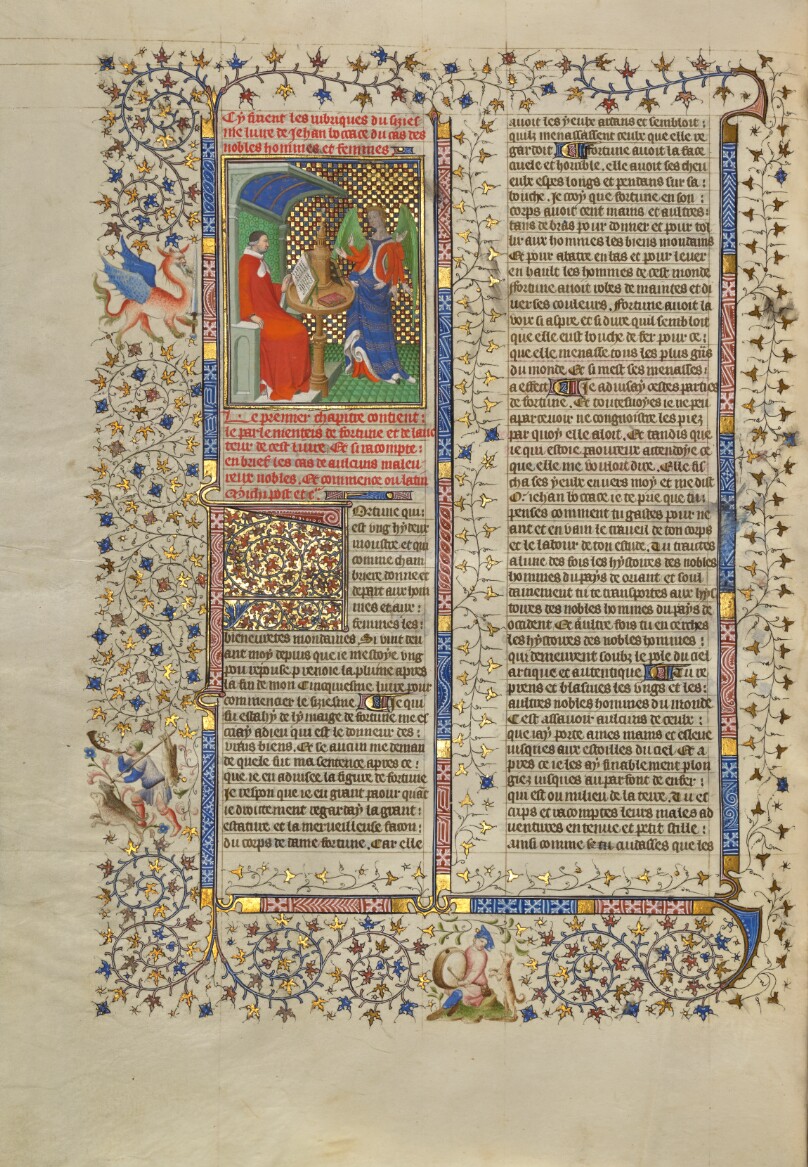 Cy finent les rubriques du sixies
me livre de Jehan bocace du cas des
nobles hommes et femmes
Le premier chapitre contient :
le parlement de fortune et de lauc
teur de cest livre. Et si racompte :
en brief les cas de aulcuns maleu
reux nobles. Et commence ou latin
Ortune qui :
est ung hydeux
monstre et qui
comme cham
briere donne et
depart aux hom
mes et aux :
femmes les :
bieneuretes mondaines. Si vint dev
ant moy depuis que ie mestoye ung
pou repouse prenoie la plume apres
la fin de mon Cinquiesme livre pour
commencier le sixiesme Je qui
fu estahy de ly maige de fortune me es
criay adieu qui est le donneur des :
vrais biens. Et se aucun me deman
de quele fut ma sentence apres ce :
que ie eu advisee la figure de fortune
ie respon que ie eu grant paour quant
ie droictement regarday la grant :
estature et la merveilleuse facon :
du corps de dame fortune. Car elle
avoit les yeulx ardans et sembloit :
quilz menassassent ceulx que elle re
gardoit fortune avoit la face
cruele et horrible. elle avoit ses chev
eulx espes longs et pendans sur sa :
bouche. Je croy que fortune en son :
corps avoit cent mains et aultres :
tans de bras pour donner et pour tol
lir aux hommes les biens mondains
Et pour abatre en bas et pour lever
en hault les hommes de cest monde
ffortune avoit robes de maintes et di
verses couleurs. ffortune avoit la
voix si aspre et si dure quil sembloit
que elle eust bouche de fer pour ce :
que elle menasse tous les plus grans
du monde. Et si mest ses menasses :
a effect Je advisay cestes parties
de fortune. Et toutesvoyes ie ne peu
apercevoir ne congnoistre les piez
par quoy elle aloit. Et tandis que
ie qui estoie paoureux attendoye ce
que elle me vouloit dire. Elle fi
cha ses yeulx envers moy et me dist
O : iehan bocace ie te prie que tu :
penses comment tu gastes pour ne
ant et en vain le travail de ton corps
et le labour de ton estude. Tu traictes
a lune des fois les hystoires des nobles
hommes du pays de oriant et soul
dainement tu te transportes aux hys
toires des nobles hommes du pays de
occident. Et aultre fois tu encerches
les hystoires des nobles hommes :
qui demeurent soubz le pole du ciel
artique et autentique Tu re
prens et blasmes les ungs et les :
aultres nobles hommes du monde
Cest assavoir aulcuns de ceulx :
que iay porte a mes mains et esleve
iusques aux estoilles du ciel Et a
pres ce ie les ay finablement plon
giez iusques au parfont de enfer :
qui est ou milieu de la terre. Tu es
crips et racomptes leurs males ad
ventures en tenue et petit stille :
ainsi comme se tu cuidasses que les